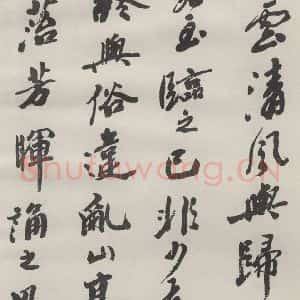 雲清風與歸
玉臨之已非少
與俗違亂山
落芳暉誦之
Shufawang.CN